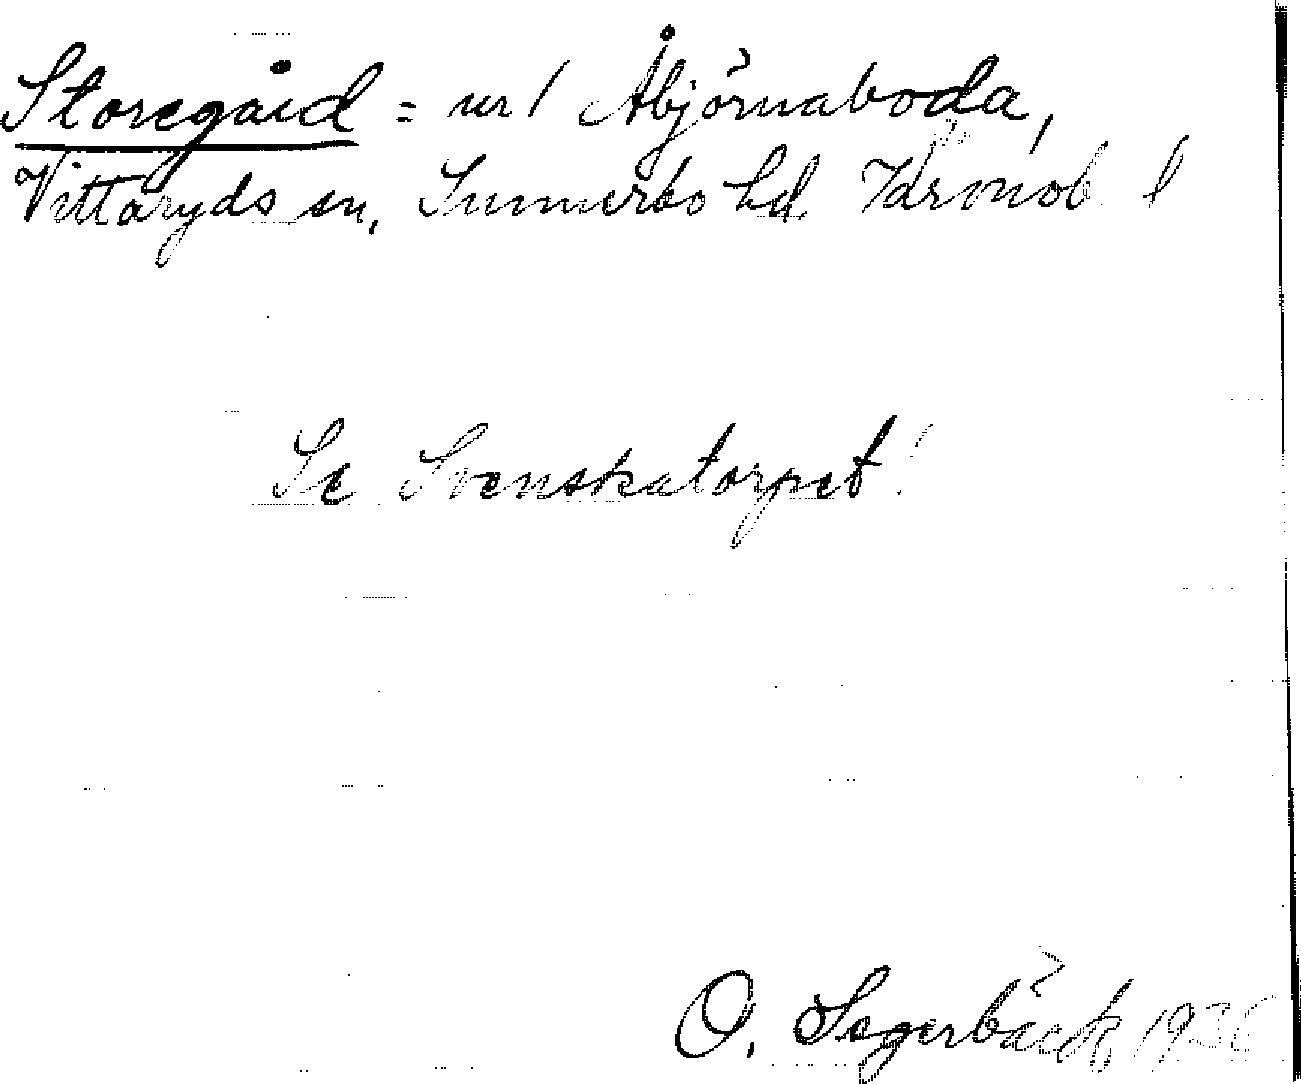 Storegård = nr 1 Åbjörnaboda,
Vittaryds sn, Sunnerbo hd Kronob l
Se Svenskatorpet!
O. Segerbäck,